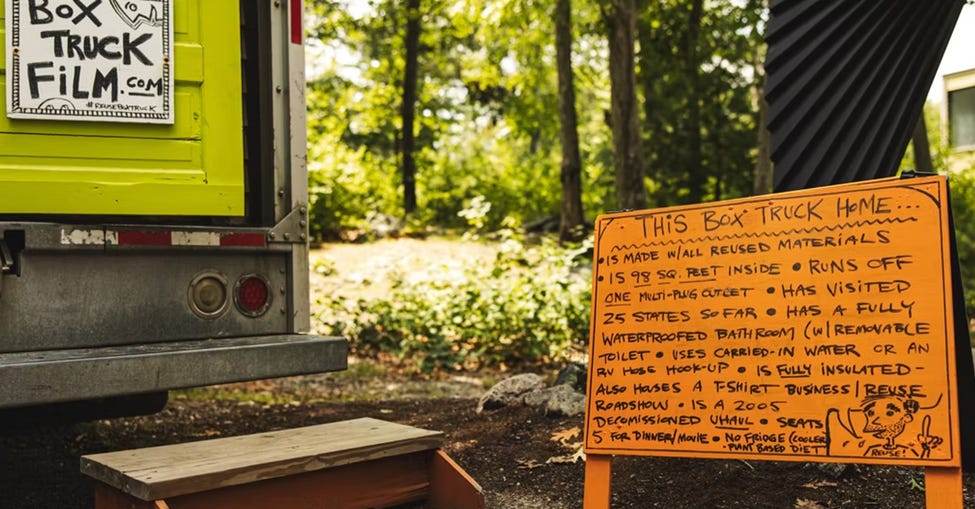 BOX
TRUCK
FILM.COM
#REUSEBOXTRUCK
THIS BOX TRUCK HOME...
• IS MADE W/ALL REUSED MATERIALS
• IS 98 SQ. FEET INSIDE • RUNS OFF
ONE MULTI-PLUG OUTLET • HAS VISITED
25 STATES SO FAR • HAS A FULLY
WATERPROOFED BATHROOM (W/REMOVABLE
TOILET • USES CARRIED-IN WATER OR AN
RV HOSE HOOK-UP • IS FULLY INSULATED-
ALSO HOUSES A T-SHIRT BUSINESS/REUSE
ROADSHOW • IS A 2005
DECOMISIONED UHAUL • SEATS
5 FOR DINNER/MOVIE • NO FRIDGE (COOLER
- PLANT BASED DIET
REUSE!